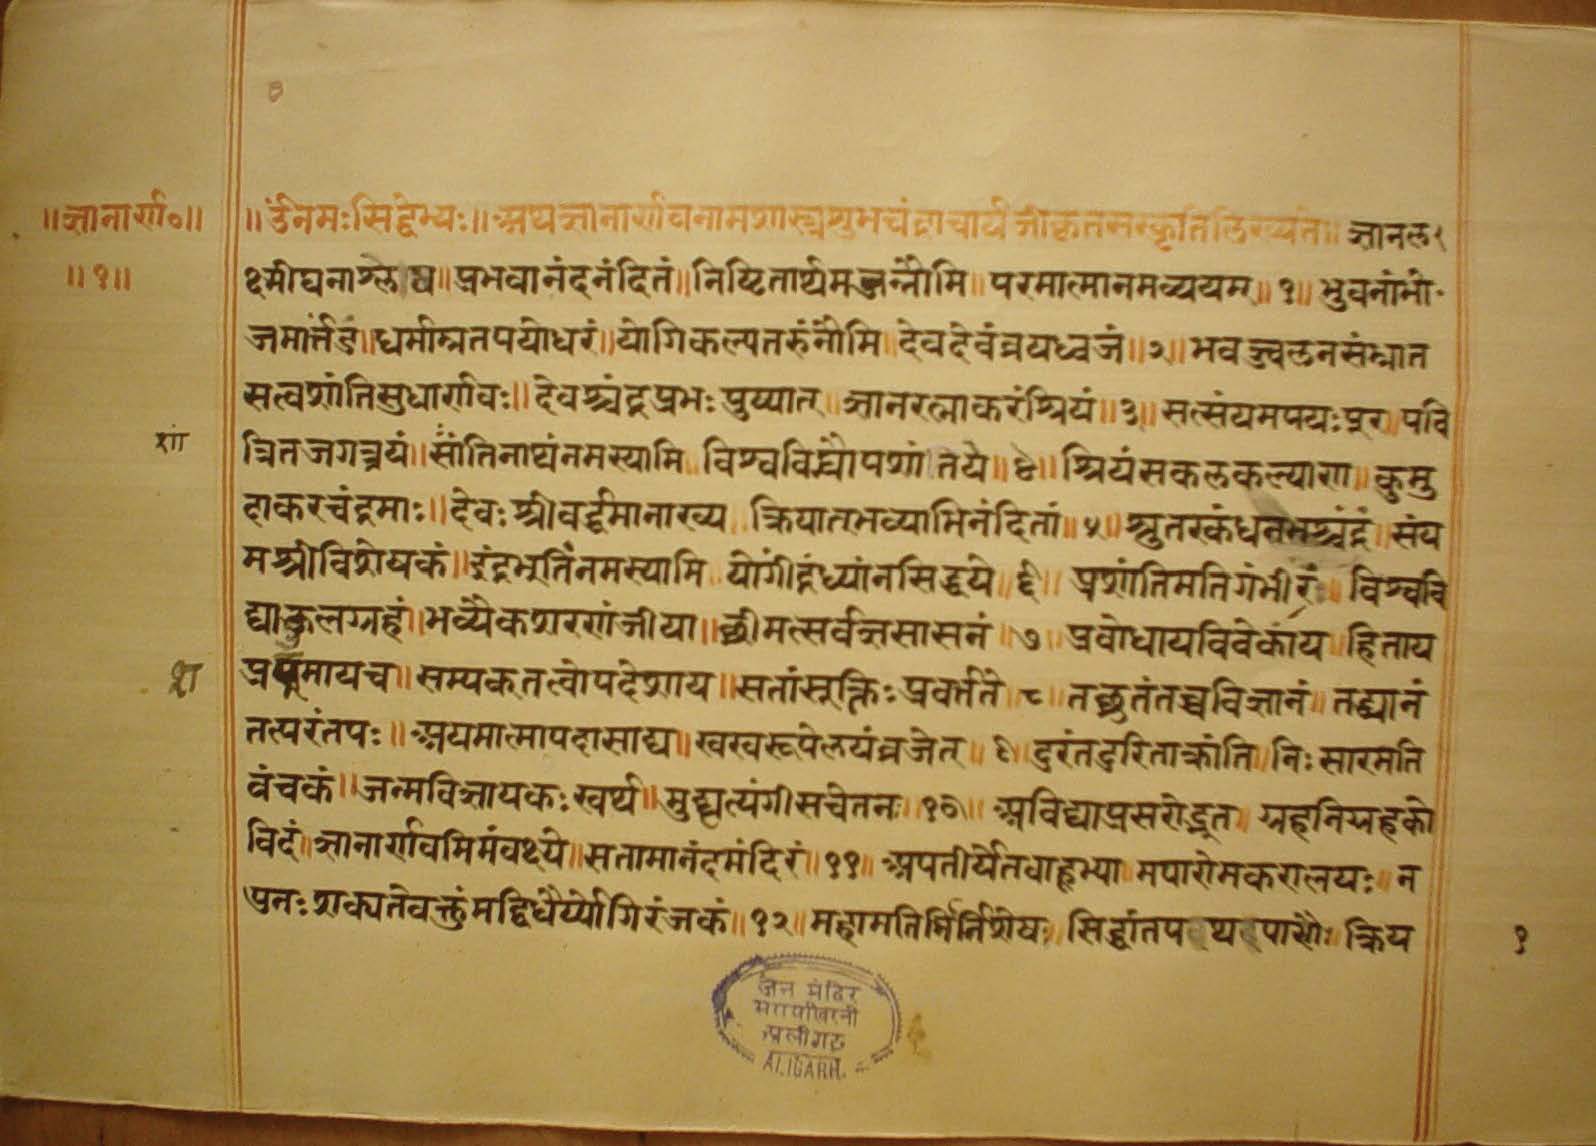 ॥ज्ञानार्ण०॥
॥१॥
॥उँनमःसिद्धेभ्यः॥अथज्ञानार्णवनामशास्त्रशुभचंद्राचार्यजीकृतसंस्कृतिलिख्यते॥ज्ञानल
क्ष्मीघनाश्लेष॥प्रभवानंदनंदितं॥निष्टितार्थमजन्नौमि॥परमात्मानमव्ययम्॥१॥भुवनांभो
जमार्त्तंडं॥धर्मामृतपयोधरं॥योगिकल्पतरुंनौमि॥देवदेवंव्रयध्वजं॥२॥भवज्वलनसंभ्रात
सत्वशांतिसुधार्णवः॥देवश्चंद्रप्रभःपुष्यात्॥ज्ञानरत्नाकरंश्रियं॥३॥सत्संयमपयःपूर॥पवि
शां
त्रितजगत्त्रयं॥सांतिनाथंनमस्यामि॥विश्वविघ्नौपशांतये॥४॥श्रियंसकलकल्याण॥कुमु
दाकरचंद्रमाः॥देवःश्रीवर्द्धमानाख्य॥क्रियात्भव्याभिनंदितां॥५॥श्रुतस्कंधनभश्चंद्रं॥संय
मश्रीविशेयकं॥इंद्रभूतिंनमस्यामि॥योगींद्रंध्यांनसिद्धये॥६॥प्रशांतिमतिगंभीरं॥विश्ववि
द्याकुलग्रहं॥भव्यैकशरणंजीया॥छ्रीमत्सर्वज्ञसासनं॥७॥प्रबोधायविवेकाय॥हिताय
श
प्रशमायच॥सम्यकतत्वोपदेशाय॥सतांसूक्तिःप्रवर्त्तते॥८॥तछ्रुतंतच्चविज्ञानं॥तद्ध्यानं
तत्परंतपः॥अयमात्मापदासाद्य॥स्वस्वरूपेलयंव्रजेत्॥९॥दुरंतदुरिताक्रांति॥निःसारमति
वंचकं॥जन्मविज्ञायकःस्वर्थ॥मुद्धृत्यंगीसचेतनः॥१०॥अविद्याप्रसरोद्भूत॥ग्रहनिग्रहको
विदं॥ज्ञानार्णवमिमंवक्ष्ये॥सतामानंदमंदिरं॥११॥अपतीर्येतबाहूभ्या॥मपारोमकरालयः॥न
पुनःशक्यतेवक्तुंमद्विधैर्योगिरंजकं॥१२॥महामतिर्भिर्निशेष॥सिद्धांतपथपाभौः॥क्रिय
१
जैन मंदिर
ALIGARH.